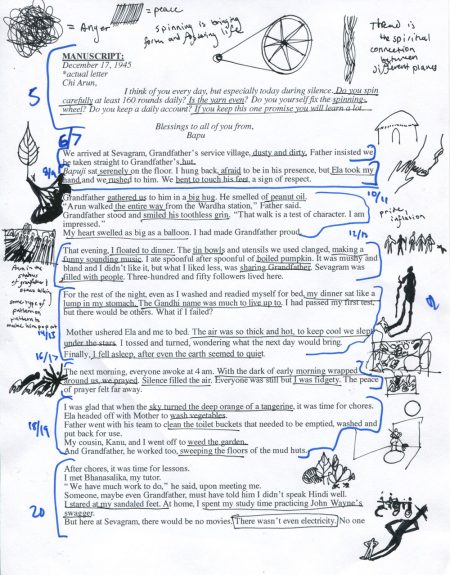 = Anger
= peace
spinning is bringing
form and following life
Thread is
the spiritual
connection
between
different planes
MANUSCRIPT:
December 17, 1945
*actual letter
Chi Arun,
5
I think of you every day, but especially today during silence. Do you spin
carefully at least 160 rounds daily? Is the yarn even? Do you yourself fix the spinning-
wheel? Do you keep a daily account? If you keep this one promise you will learn a lot....
Blessings to all of you from,
Bapu
6/7
We arrived at Sevagram, Grandfather's service village, dusty and dirty. Father insisted we
be taken straight to Grandfather's hut.
8/9
Bapuji sat serenely on the floor. I hung back, afraid to be in his presence, but Ela took my
hand and we rushed to him. We bent to touch his feet, a sign of respect.
10/11
Grandfather gathered us to him in a big hug. He smelled of peanut oil.
"Arun walked the entire way from the Wardha station," Father said.
Grandfather stood and smiled his toothless grin. "That walk is a test of character. I am
impressed."
My heart swelled as big as a balloon. I had made Grandfather proud.
pride
inflation
12/13
That evening, I floated to dinner. The tin bowls and utensils we used clanged, making a
funny sounding music. I ate spoonful after spoonful of boiled pumpkin. It was mushy and
bland and I didn't like it, but what I liked less, was sharing Grandfather. Sevagram was
filled with people. Three-hundred and fifty followers lived here.
Arun in the
some type of
pattern on
pattern to
make him pop out
For the rest of the night, even as I washed and readied myself for bed, my dinner sat like a
lump in my stomach. The Gandhi name was much to live up to. I had passed my first test,
but there would be others. What if I failed?
14/15
Mother ushered Ela and me to bed. The air was so thick and hot, to keep cool we slept
under the stars. I tossed and turned, wondering what the next day would bring.
Finally, I fell asleep, after even the earth seemed to quiet.
16/17
The next morning, everyone awoke at 4 am. With the dark of early morning wrapped
around us, we prayed. Silence filled the air. Everyone was still but I was fidgety. The peace
of prayer felt far away.
18/19
I was glad that when the sky turned the deep orange of a tangerine, it was time for chores.
Ela headed off with Mother to wash vegetables.
Father went with his team to clean the toilet buckets that needed to be emptied, washed and
put back for use.
My cousin, Kanu, and I went off to weed the garden.
And Grandfather, he worked too, sweeping the floors of the mud huts.
20
After chores, it was time for lessons.
I met Bhanasalika, my tutor.
"We have much work to do," he said, upon meeting me.
Someone, maybe even Grandfather, must have told him I didn't speak Hindi well.
I stared at my sandaled feet. At home, I spent my study time practicing John Wayne's
swagger.
But here at Sevagram, there would be no movies. There wasn't even electricity. No one